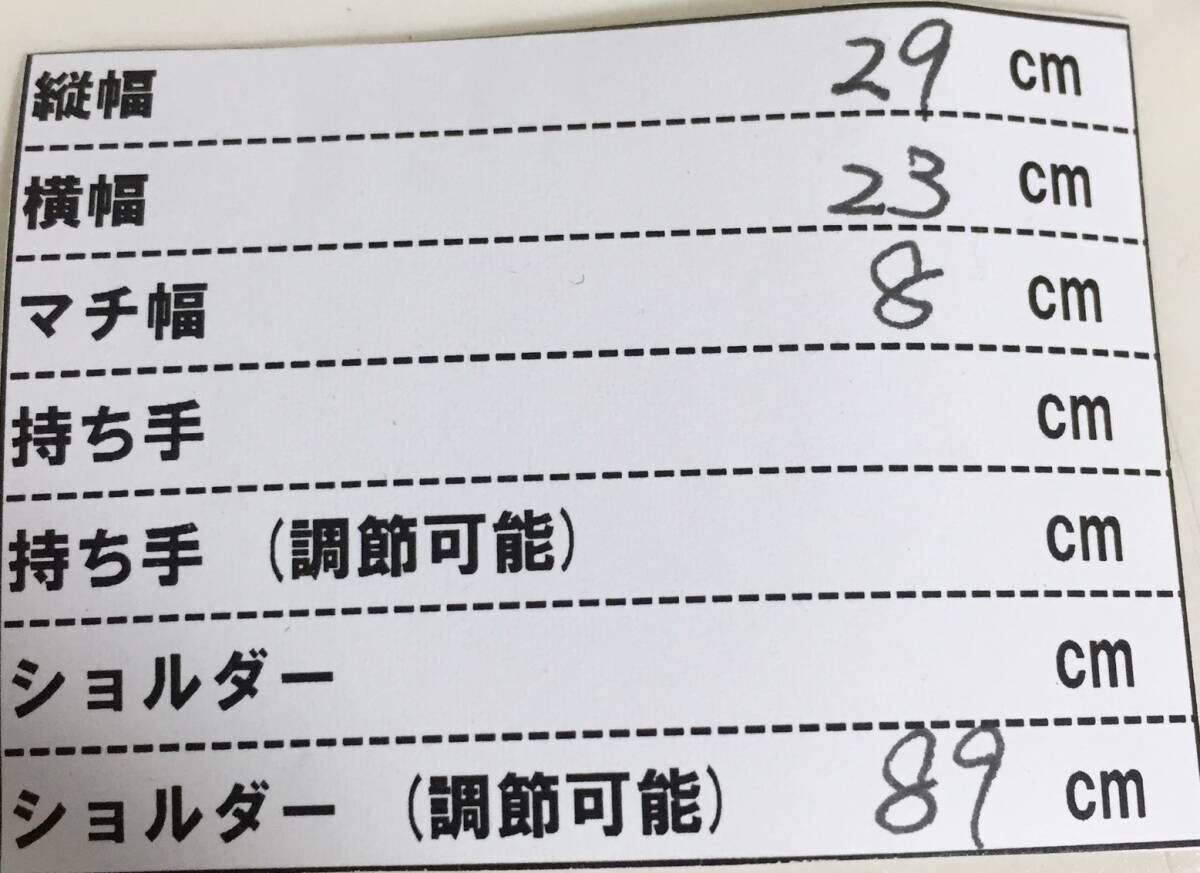 縦幅 29 cm
横幅 23 cm
マチ幅 8 cm
持ち手 cm
持ち手 (調節可能) cm
ショルダー cm
ショルダー (調節可能) 89 cm